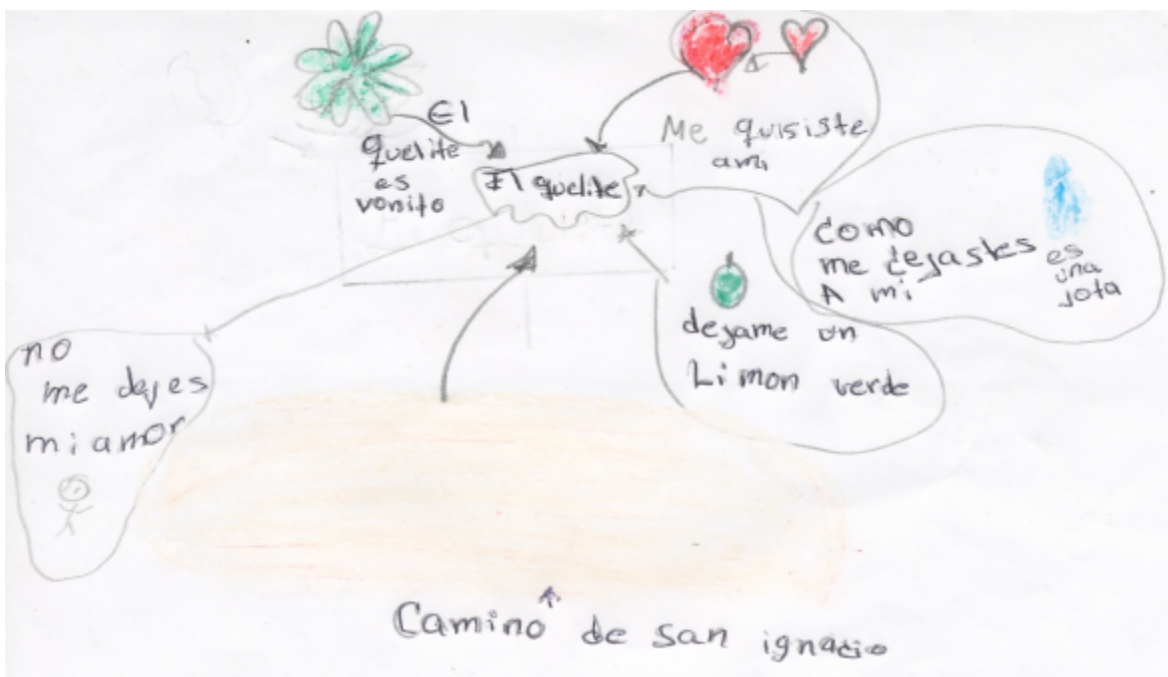 El
quelite
es
vonito
El quelite
Me quisiste
ami
como
me dejastes
A mi
es
una
jota
dejame un
Limon verde
no
me dejes
mi amor
Camino de san ignacio